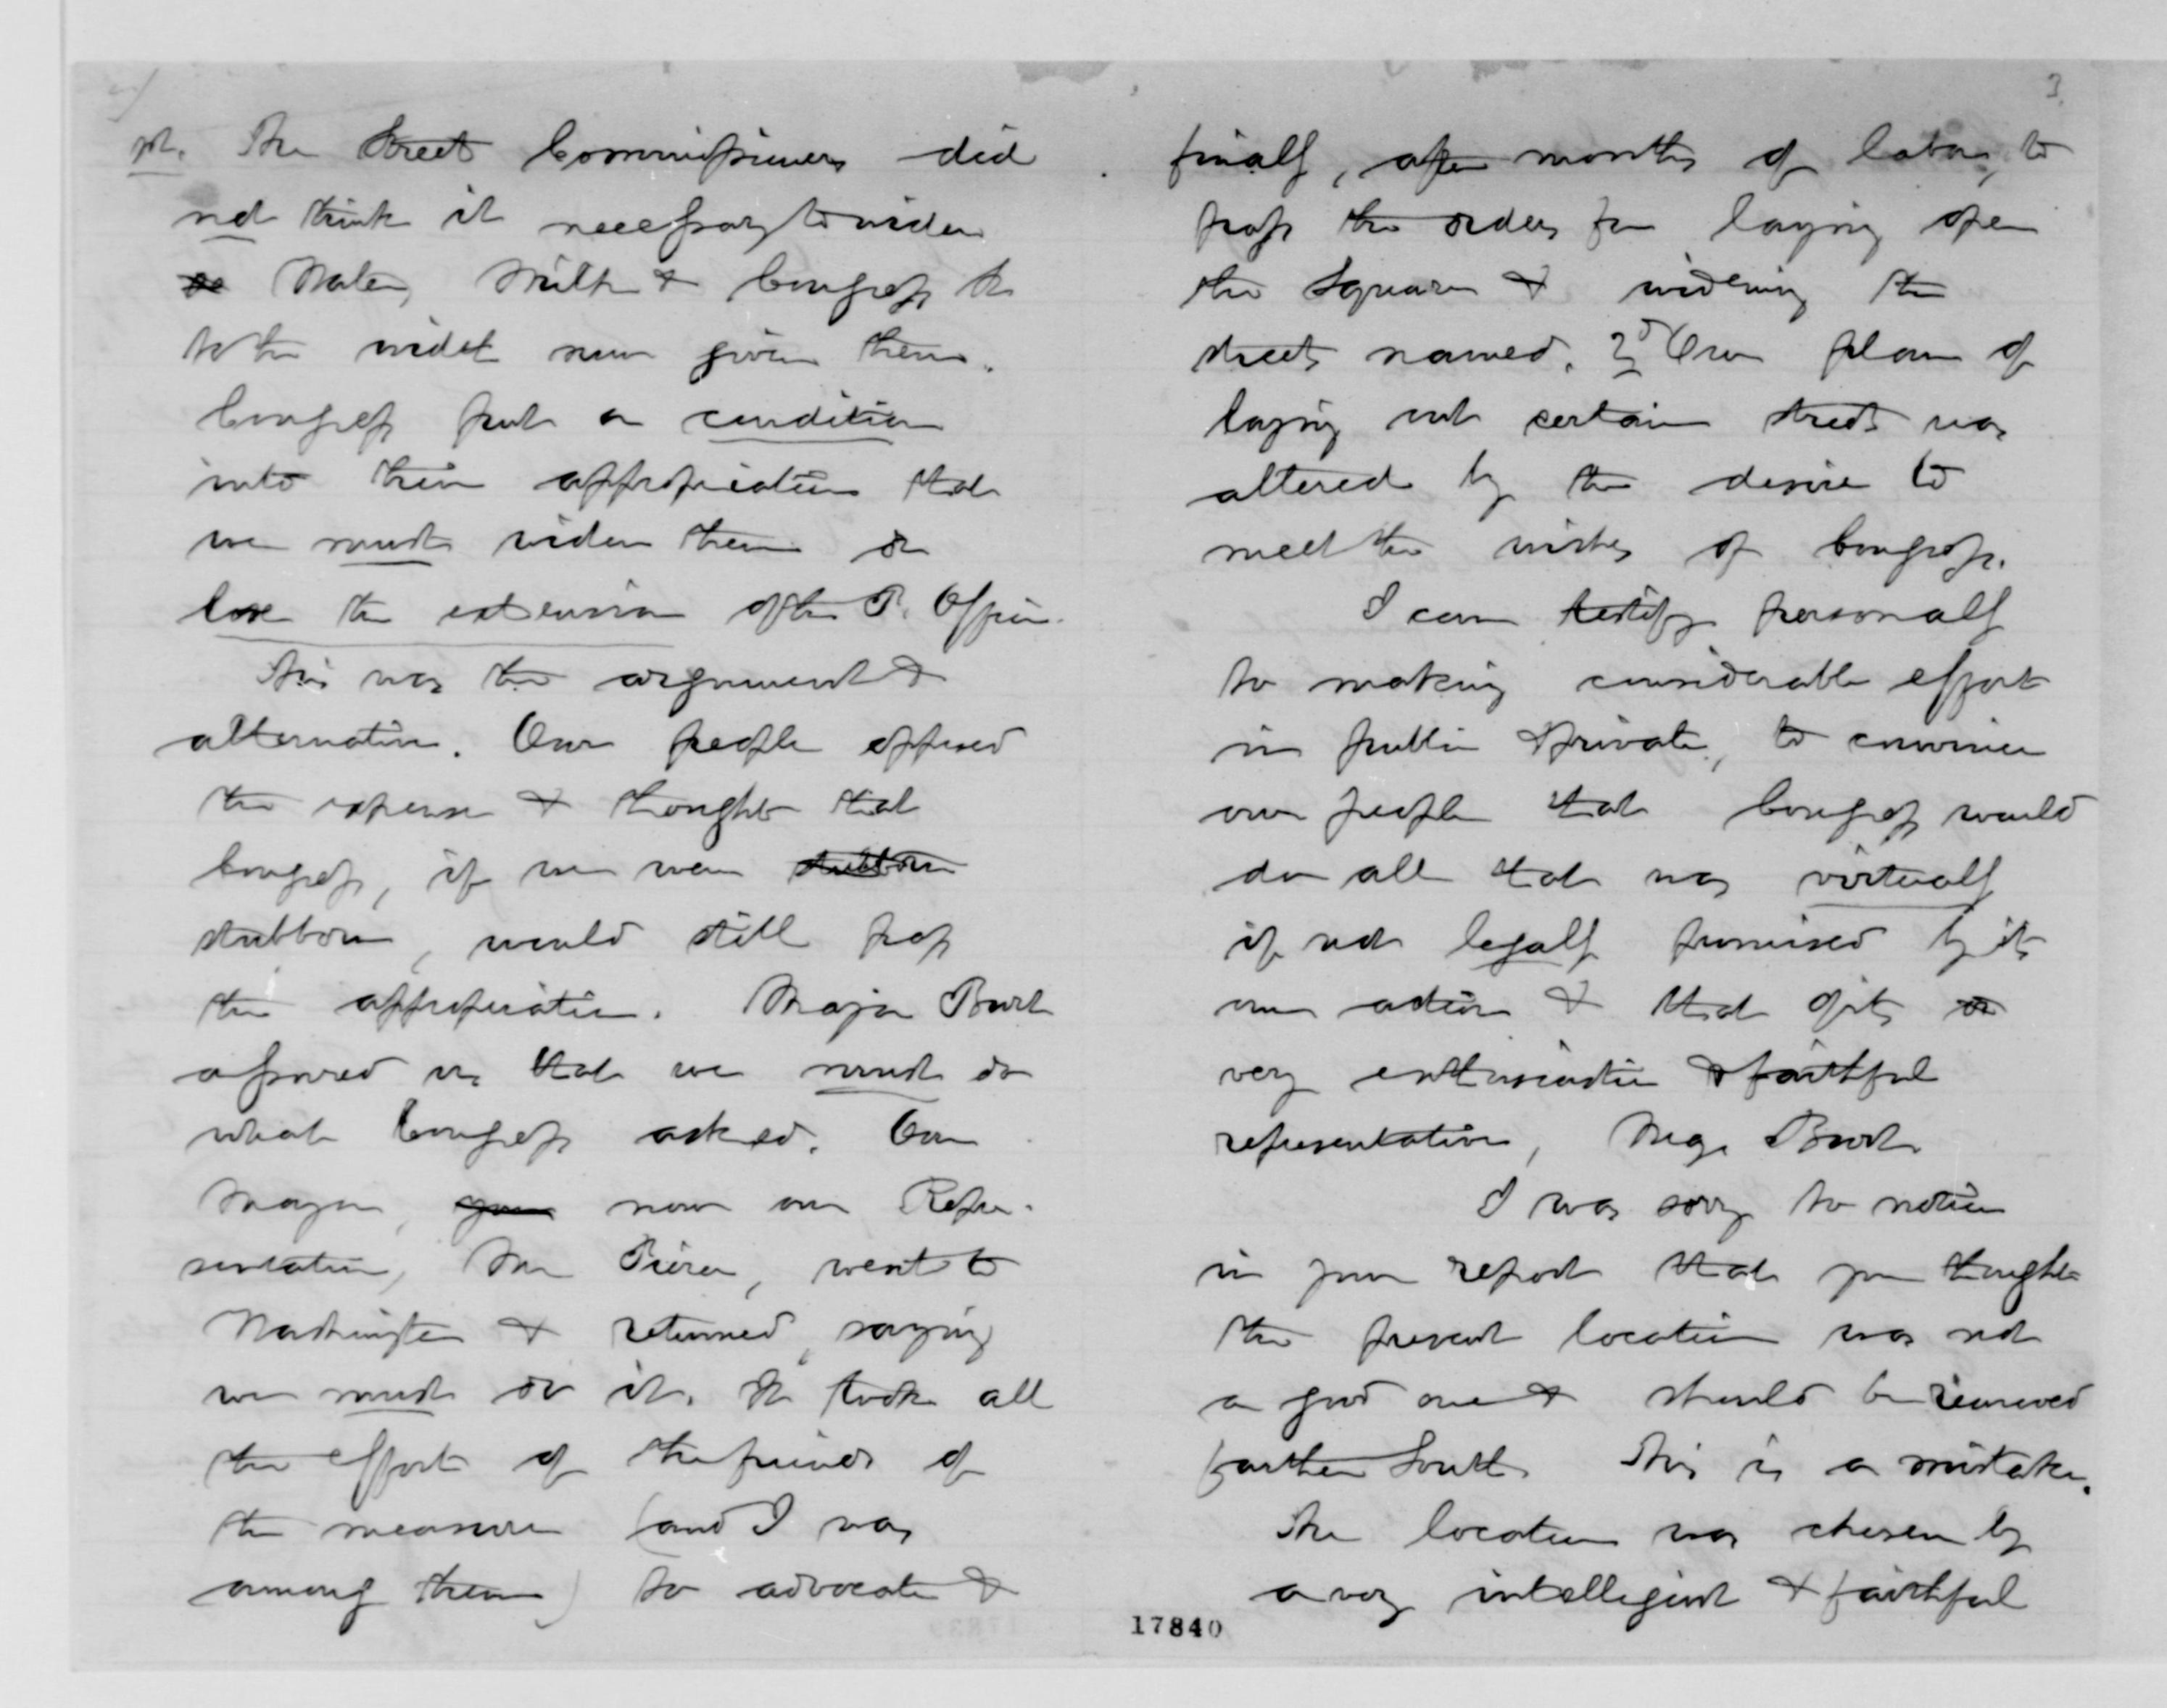 1st. The Street Commissioners did
not think it necessary to widen
Water, Milk & Congress Sts
to the widt now given them.
Congress put a condition
into their appropriation that
we must widen them or
lose the extension of the P. Office.
This was the argument &
alternative. Our people opposed
the expense & thought that
Congress, if we were stubborn
stubborn, would still pass
the appropriation. Major Burt
assured us that we must do
what Congress asked. Our
Mayor, now our Repre-
sentative, Mr Pierce, went to
Washington & returned, saying
we must do it. It took all
the effort of the friends of
the measure (and I was
among them) to advocate &
3.
finally, after months of labor, to
pass the orders for laying open
the Square & widening the
streets named. 2d Our plan of
laying out certain streets was
altered by the desire to
meet the wishes of Congress.
I can testify personally
to making considerable effort
in public & private, to convince
our people that Congress would
do all that was virtually
if not legally promised by its
own action & that of its
very enthusiastic & faithful
representative, Maj. Burt.
I was sorry to notice
in your report that you thought
the present location was not
a good one & should be removed
farther South. This is a mistake.
The location was chosen by
a very intelligent & faithful
17840